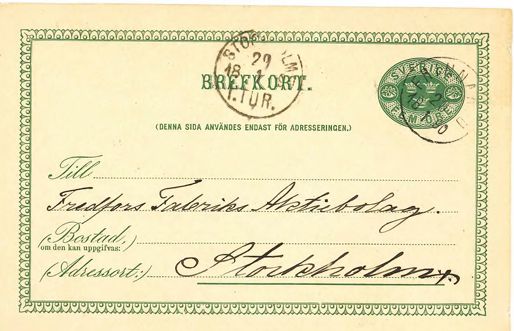 STOCKHOLM
29
1
18
1.TUR.
BREFKORT.
SVERIGE
FEM ÖRE
(DENNA SIDA ANVÄNDES ENDAST FÖR ADRESSERINGEN.)
Till
Fredfors Fabriks Aktiebolag.
(Bostad,)
om den kan uppgifvas:
(Adressort:) Stockholm